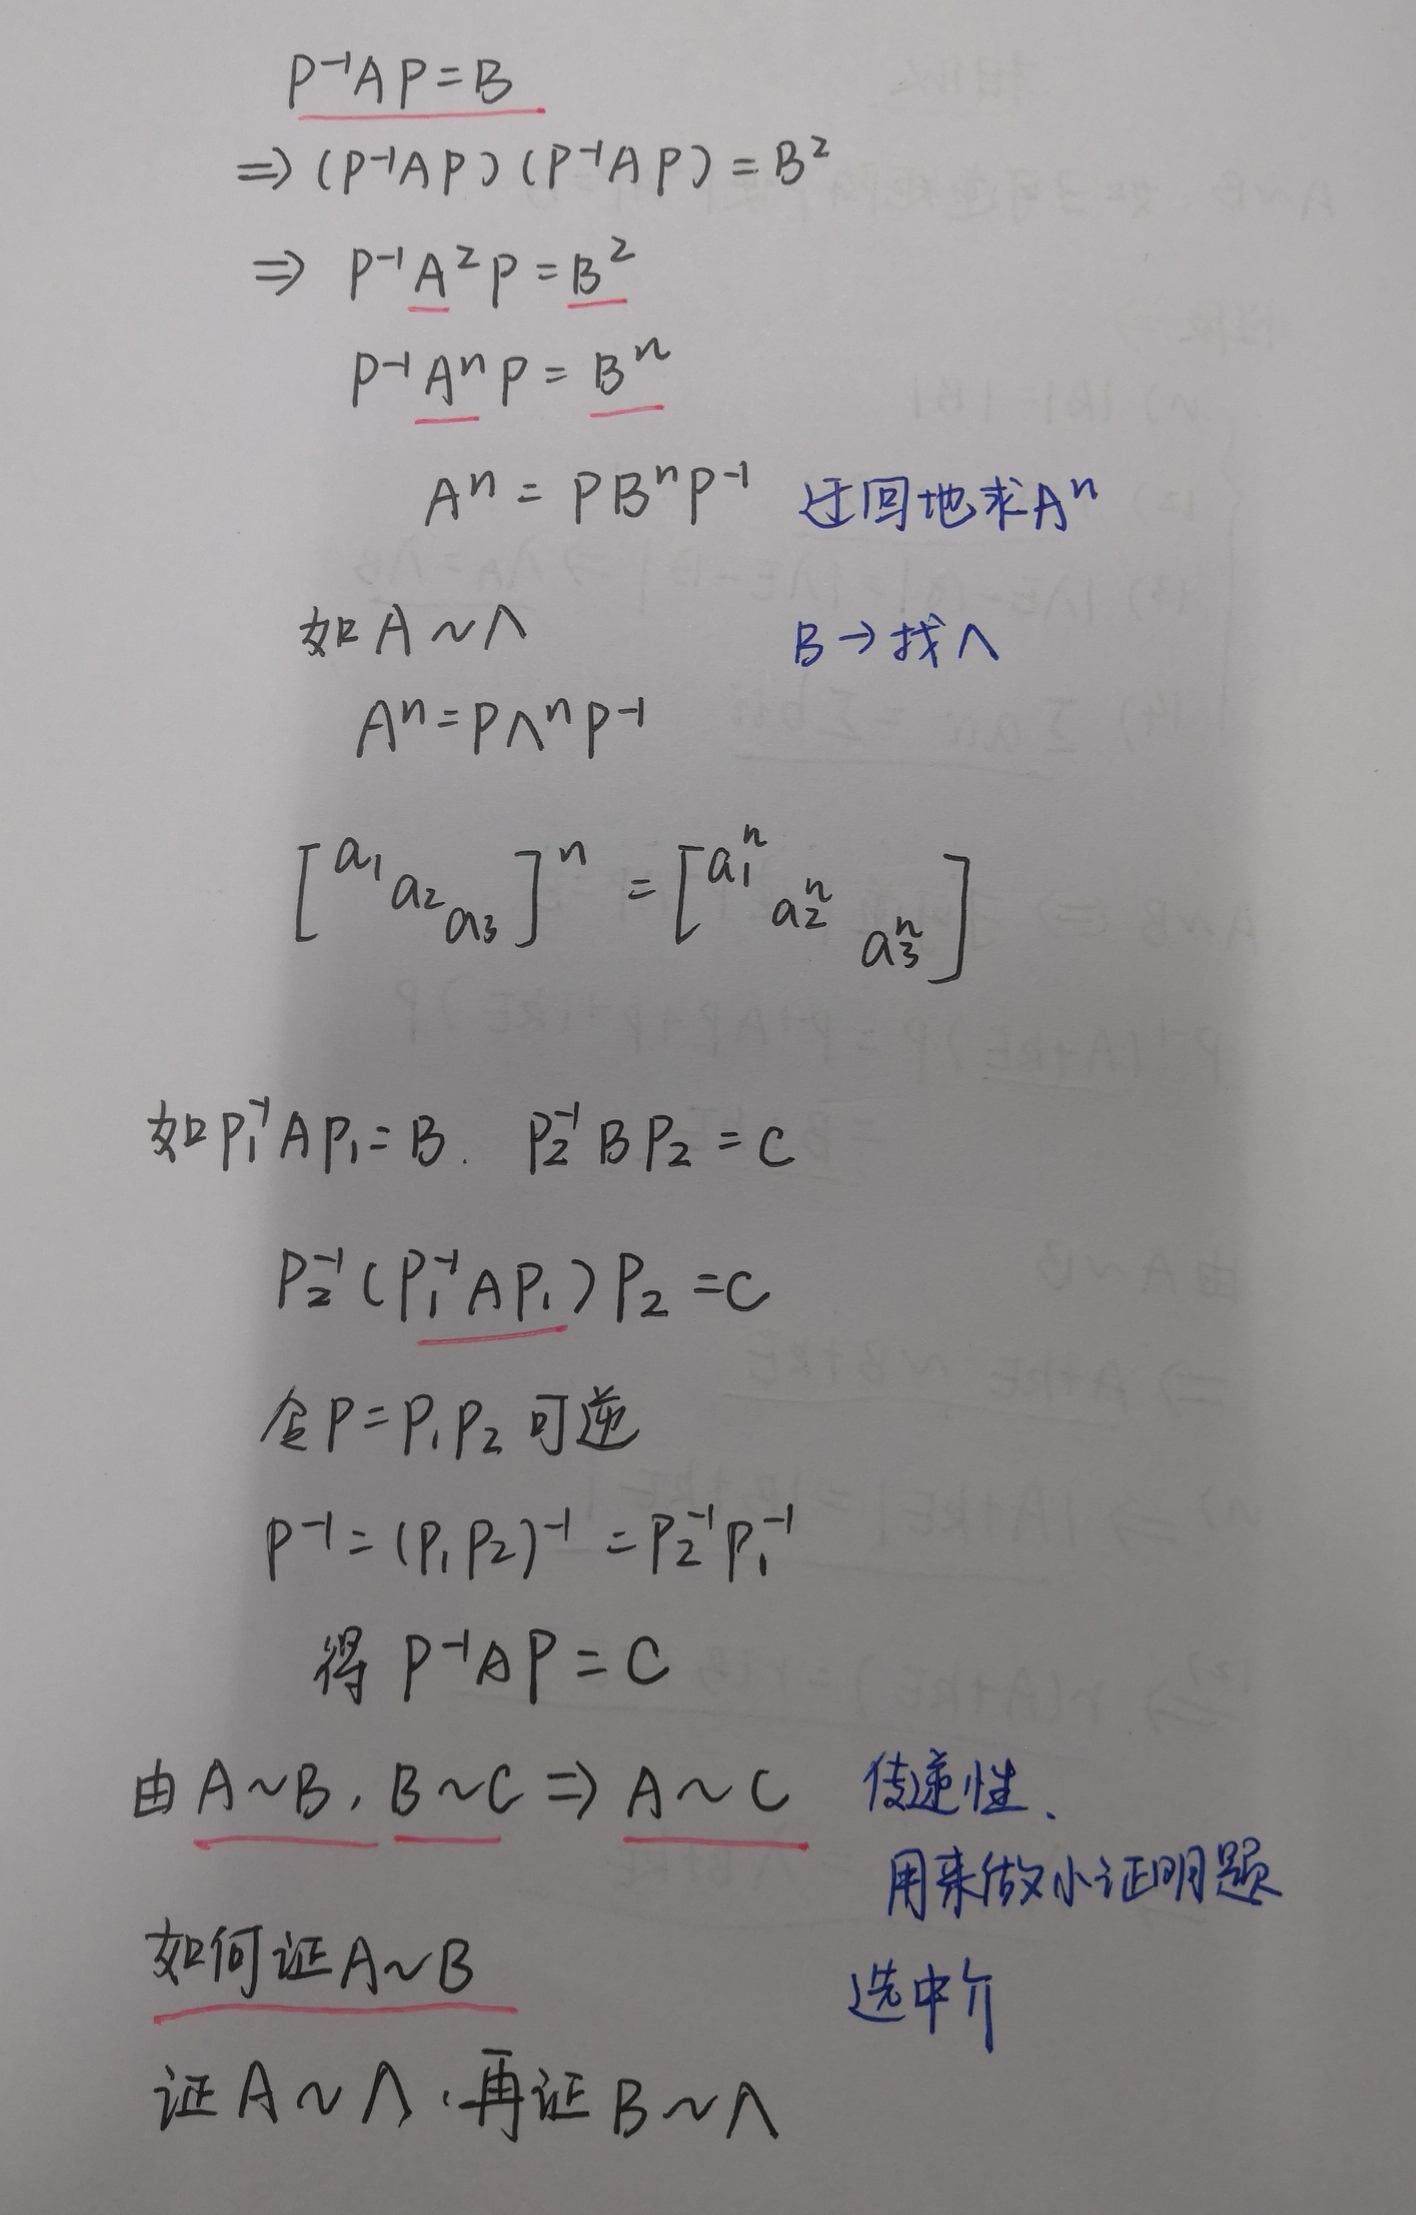 P⁻¹AP=B
⇒(P⁻¹AP)(P⁻¹AP)=B²
⇒ P⁻¹A²P=B²
P⁻¹AⁿP=Bⁿ
Aⁿ=PBⁿP⁻¹ 迂回地求Aⁿ
如A~Λ B→找Λ
Aⁿ=PΛⁿP⁻¹
[a₁ a₂ a₃]ⁿ=[a₁ⁿ a₂ⁿ a₃ⁿ]
如P₁⁻¹AP₁=B. P₂⁻¹BP₂=C
P₂⁻¹(P₁⁻¹AP₁)P₂=C
令P=P₁P₂可逆
P⁻¹=(P₁P₂)⁻¹=P₂⁻¹P₁⁻¹
得 P⁻¹AP=C
由A~B,B~C⇒A~C 传递性、
用来做小证明题
如何证A~B 选中介
证A~Λ,再证B~Λ